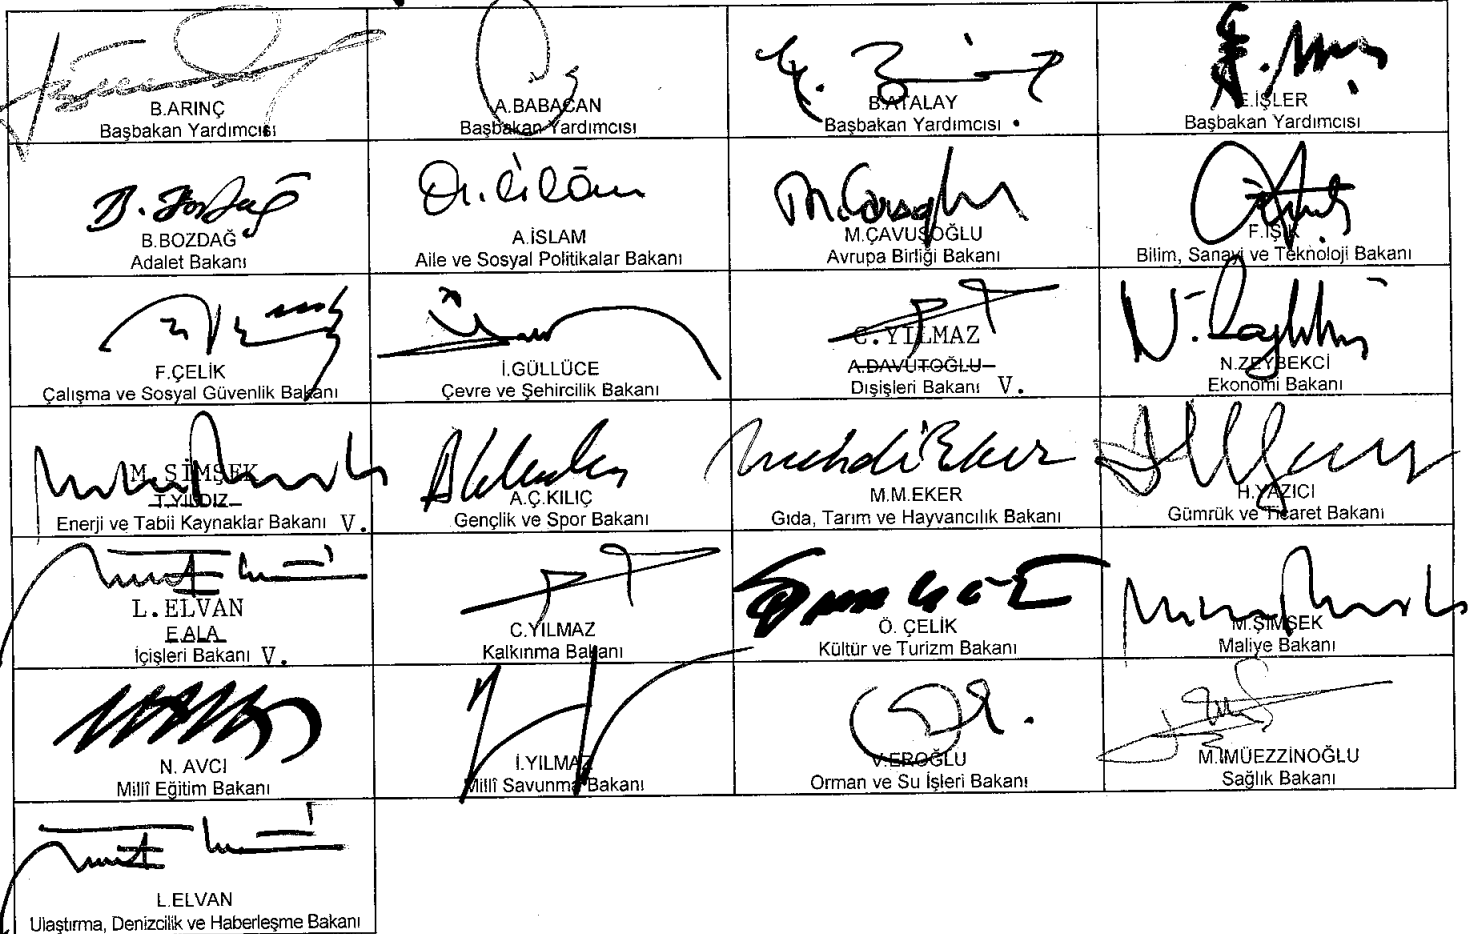 B.ARINÇ
Başbakan Yardımcısı
A.BABACAN
Başbakan Yardımcısı
B.ATALAY
Başbakan Yardımcısı
E.İŞLER
Başbakan Yardımcısı
B.BOZDAĞ
Adalet Bakanı
A.İSLAM
Aile ve Sosyal Politikalar Bakanı
M.ÇAVUŞOĞLU
Avrupa Birliği Bakanı
F.IŞIK
Bilim, Sanayi ve Teknoloji Bakanı
F.ÇELİK
Çalışma ve Sosyal Güvenlik Bakanı
İ.GÜLLÜCE
Çevre ve Şehircilik Bakanı
C.YILMAZ
A.DAVUTOĞLU
Dışişleri Bakanı V.
N.ZEYBEKCİ
Ekonomi Bakanı
M.ŞİMŞEK
T.YILDIZ
Enerji ve Tabii Kaynaklar Bakanı V.
A.Ç.KILIÇ
Gençlik ve Spor Bakanı
M.M.EKER
Gıda, Tarım ve Hayvancılık Bakanı
H.YAZICI
Gümrük ve Ticaret Bakanı
L.ELVAN
E.ALA
İçişleri Bakanı V.
C.YILMAZ
Kalkınma Bakanı
Ö. ÇELİK
Kültür ve Turizm Bakanı
M.ŞİMŞEK
Maliye Bakanı
N. AVCI
Millî Eğitim Bakanı
İ.YILMAZ
Millî Savunma Bakanı
V.EROĞLU
Orman ve Su İşleri Bakanı
M.MÜEZZİNOĞLU
Sağlık Bakanı
L.ELVAN
Ulaştırma, Denizcilik ve Haberleşme Bakanı